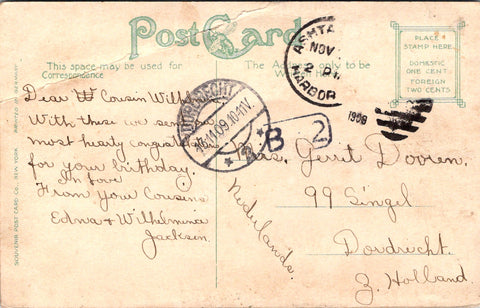 Post Card
This space may be used for
Correspondence
The Address only to be
PLACE
STAMP HERE
DOMESTIC
ONE CENT
FOREIGN
TWO CENTS
ASHTA
NOV
2
HARBOR
1909
DORDRECHT
16.11.09.10-11V.
B
2
Dear Cousin Wilhel
With these we send
most hearty congra
for your birthday.
In love
From your Cousins
Edna & Wilhelmina
Jackson.
Mrs. Gerrit Doven.
99 Singel
Dordrecht.
Z. Holland
Nederlands.
SOUVENIR POST CARD CO., NEW YORK